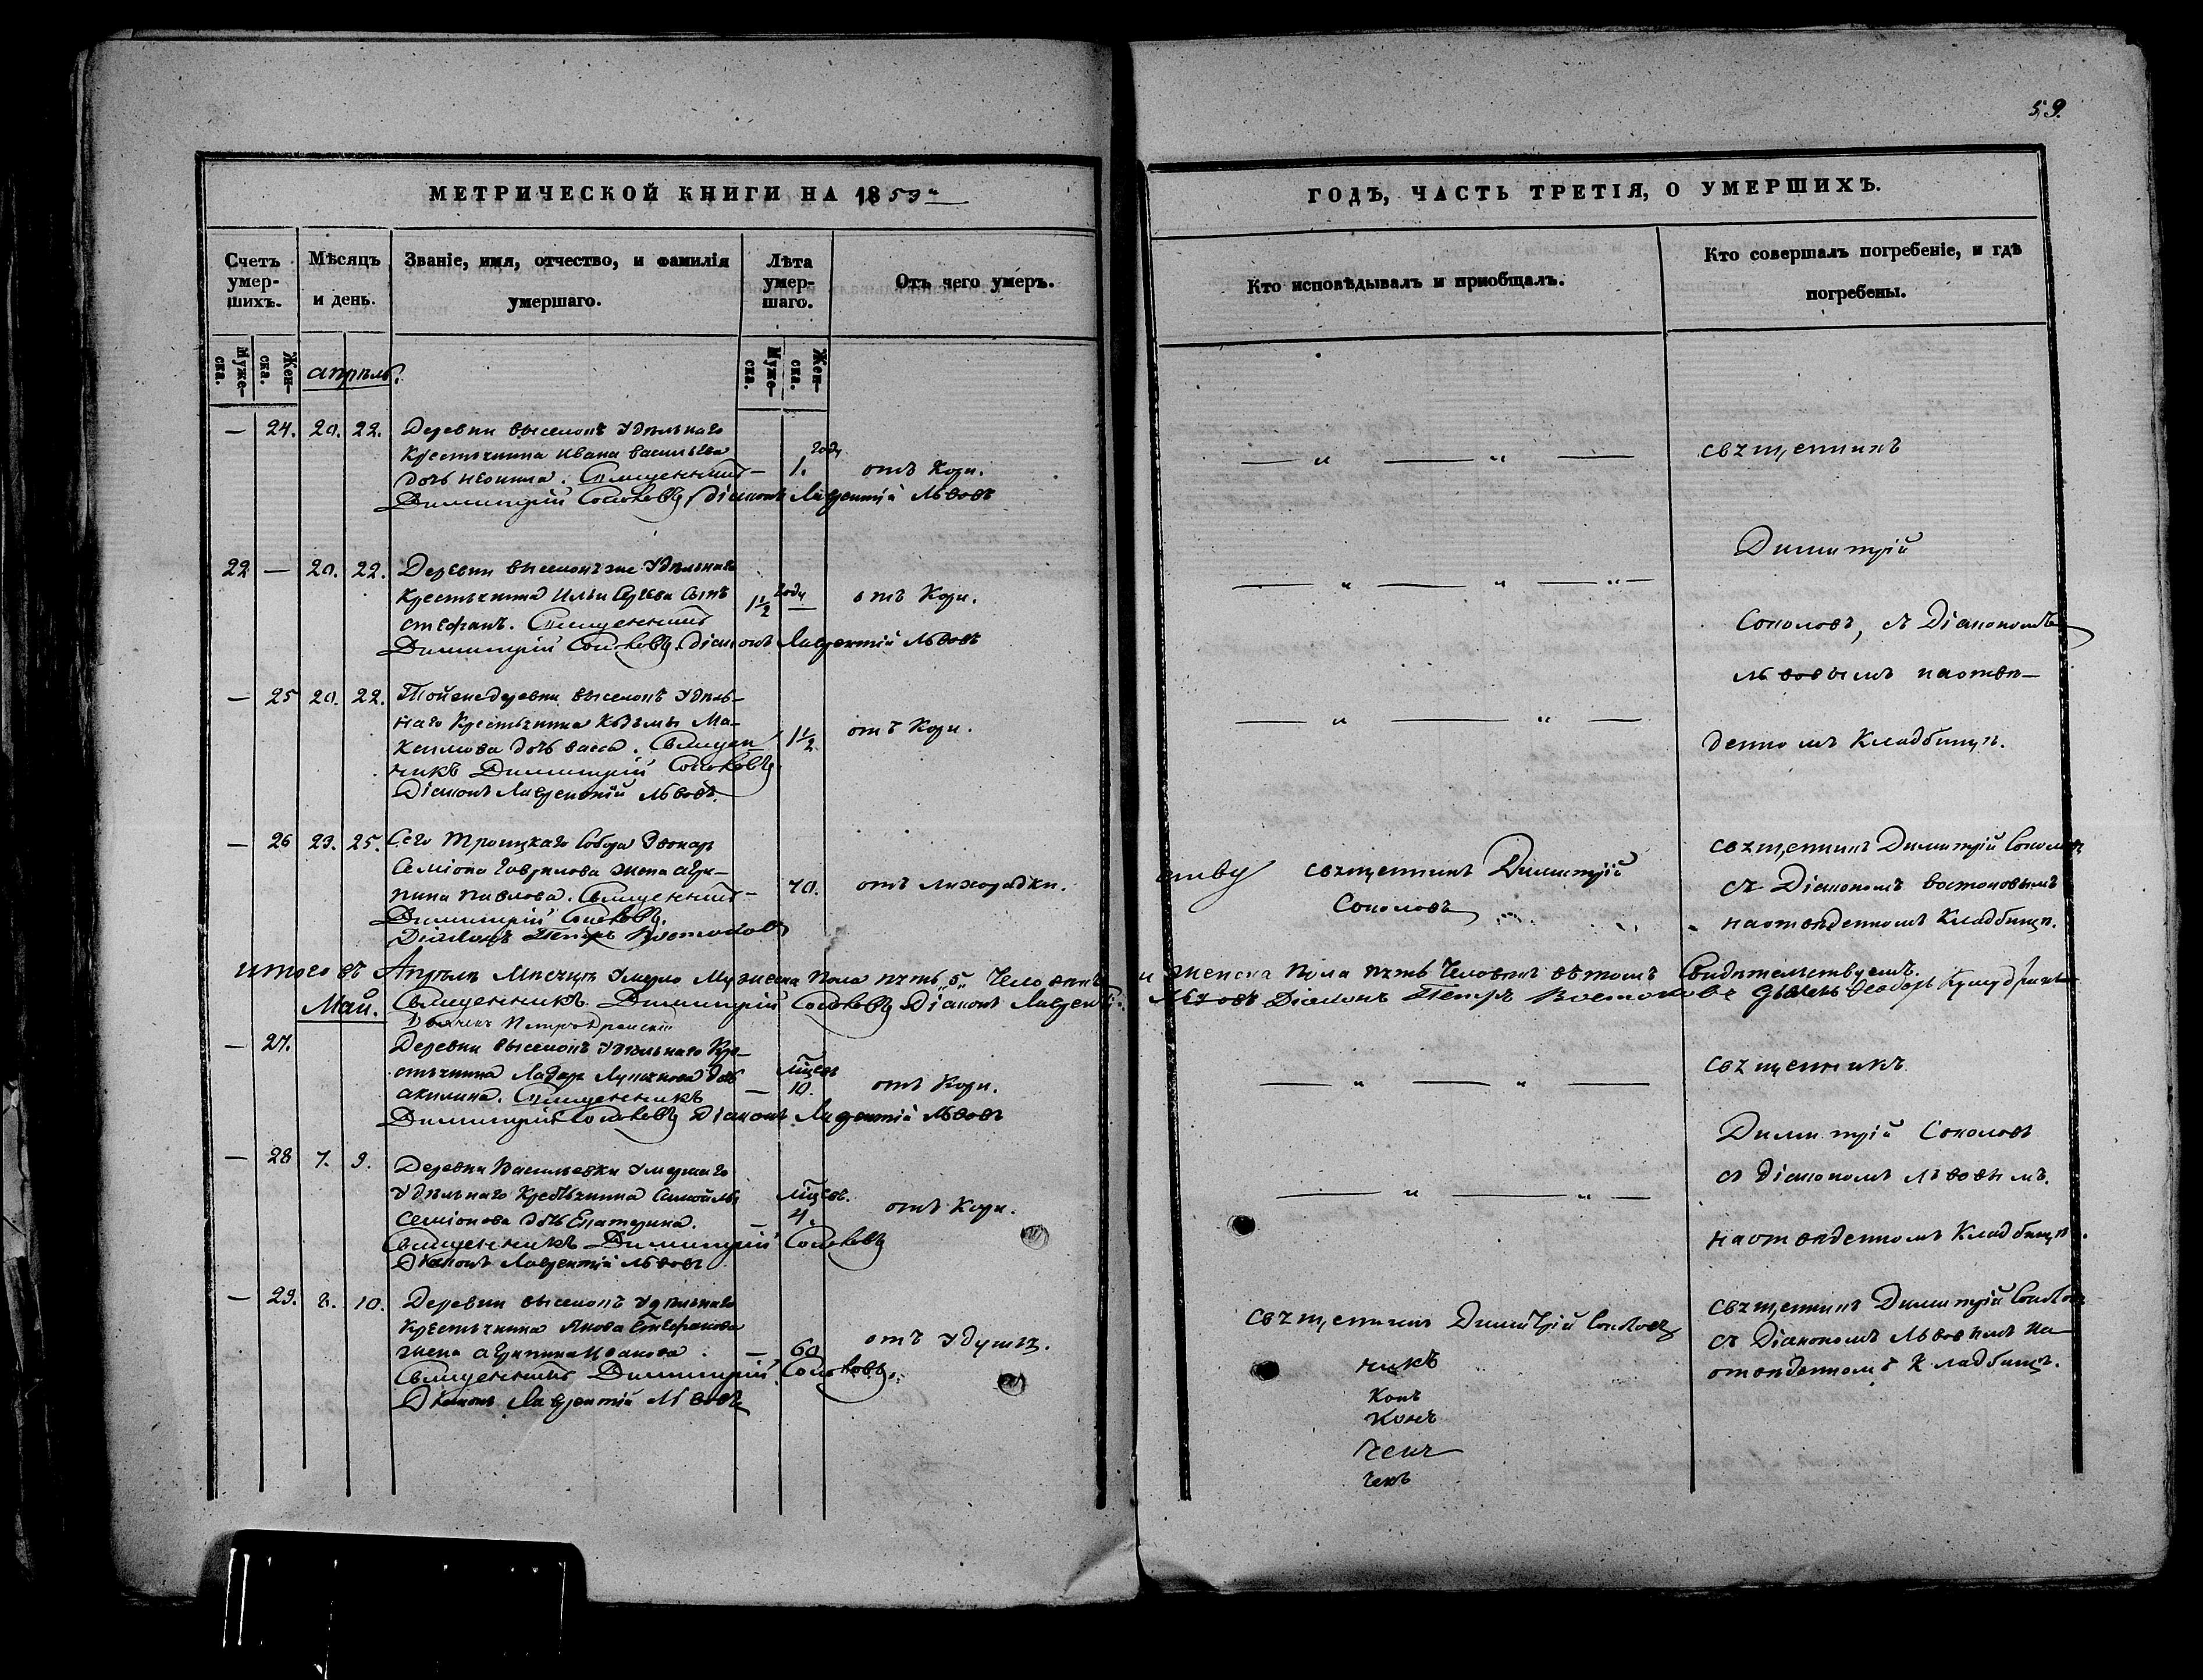 59.
МЕТРИЧЕСКОЙ КНИГИ НА 1859
ГОДЪ, ЧАСТЬ ТРЕТІЯ, О УМЕРШИХЪ.
Счетъ умер-шихъ.
Мѣсяцъ и день.
Званіе, имя, отчество, и фамилія умершаго.
Лѣта умер-шаго.
Отъ чего умеръ.
Кто исповѣдывалъ и пріобщалъ.
Кто совершалъ погребеніе, и гдѣ погребены.
Муже-ска.
Жен-ска.
Муже-ска.
Жен-ска.
апрѣль.
— 24. 20. 22. Деревни выселокъ удѣльнаго
крестьянина Ивана Васильева
дочь Неонила. Священникъ
Димитрій Соколовъ, Діаконъ Лаврентій Львовъ
1. году
отъ Кори.
священникъ
22 — 20. 22. Деревни выселокъ же Удѣльнаго
крестьянина Ильи сынъ
стефанъ. Священникъ
Димитрій Соколовъ. Діаконъ Лаврентій Львовъ
1½ году
отъ Кори.
Димитрій
Соколовъ, съ Діакономъ
— 25 20. 22. Тойже деревни выселокъ Удѣль-
наго Крестьянина Козьмы Ма-
ксимова дочь васса. Священ
никъ Димитрій Соколовъ.
Діаконъ Лаврентій Львовъ.
1½
отъ Кори.
львовымъ на отве-
денномъ Кладбищѣ.
— 26 23. 25. Сего Троицкаго Собора Звонар
Семіона Гаврилова жена агри-
пина павлова. Священникъ
Димитрій Соколовъ.
Діаконъ Петръ Востоковъ
70.
отъ лихорадки.
священникъ Димитрій
Соколовъ
священникъ Димитрій Соколовъ
съ Діакономъ востоковымъ
на отведенномъ Кладбищѣ.
итого въ Апрѣлѣ Мѣсяцѣ Умерло Мужеска пола пять „5„ Человѣкъ и женска пола пять Человѣкъ вѣтомъ Свидѣтельствуемъ.
Май. Священникъ Димитрій Соколовъ Діаконъ Лаврентій Львовъ Діаконъ Петръ Востоковъ дьячекъ Ѳеодоръ
Дьячекъ Петръ
— 27. Деревни выселокъ удѣльнаго Кре-
стьянина дочь
акилина. Священникъ
Димитрій Соколовъ Діаконъ Лаврентій Львовъ
— мцевъ 10.
отъ Кори.
священникъ
— 28 7. 9. Деревни Васильевки умершаго
Удѣльнаго Крестьянина Самойлы
Семіонова дочь Екатерина.
Священникъ Димитрій Соколовъ
Діаконъ Лаврентій Львовъ
— мцевъ. 4.
отъ Кори.
Димитрій Соколовъ
съ діакономъ львовымъ.
на отведенномъ Кладбищѣ.
— 29. 8. 10. Деревни выселокъ удѣльнаго
Крестьянина Якова Стефанова
жена агрипина Иванова.
Священникъ Димитрій Соколовъ.
Діаконъ Лаврентій Львовъ
— 60
отъ Удушья.
священникъ Димитрій Соколовъ
священникъ Димитрій Соколовъ
съ Діакономъ Львовымъ на
отведенномъ Кладбищѣ.
никъ
конъ
конъ
чекъ
чекъ